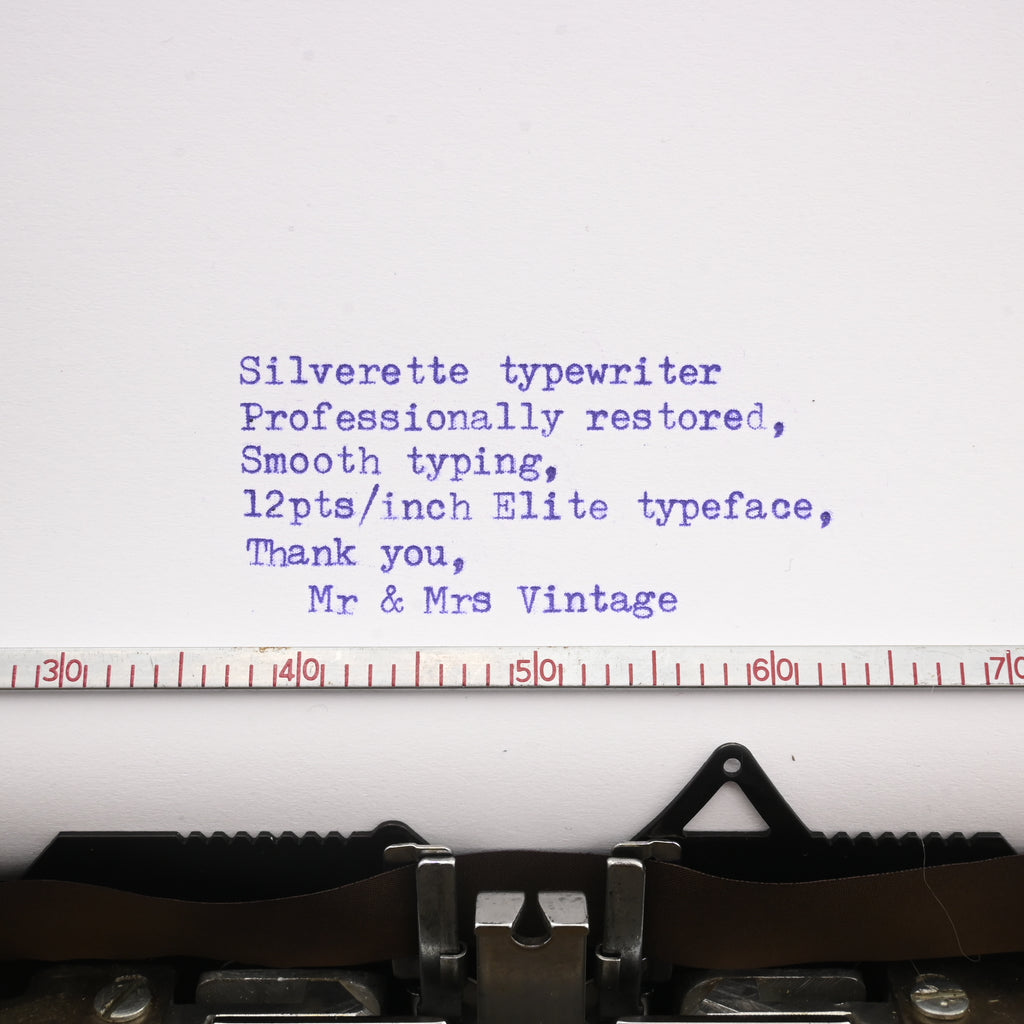 Silverette typewriter
Professionally restored,
Smooth typing,
12pts/inch Elite typeface,
Thank you,
Mr & Mrs Vintage
30 40 50 60 70